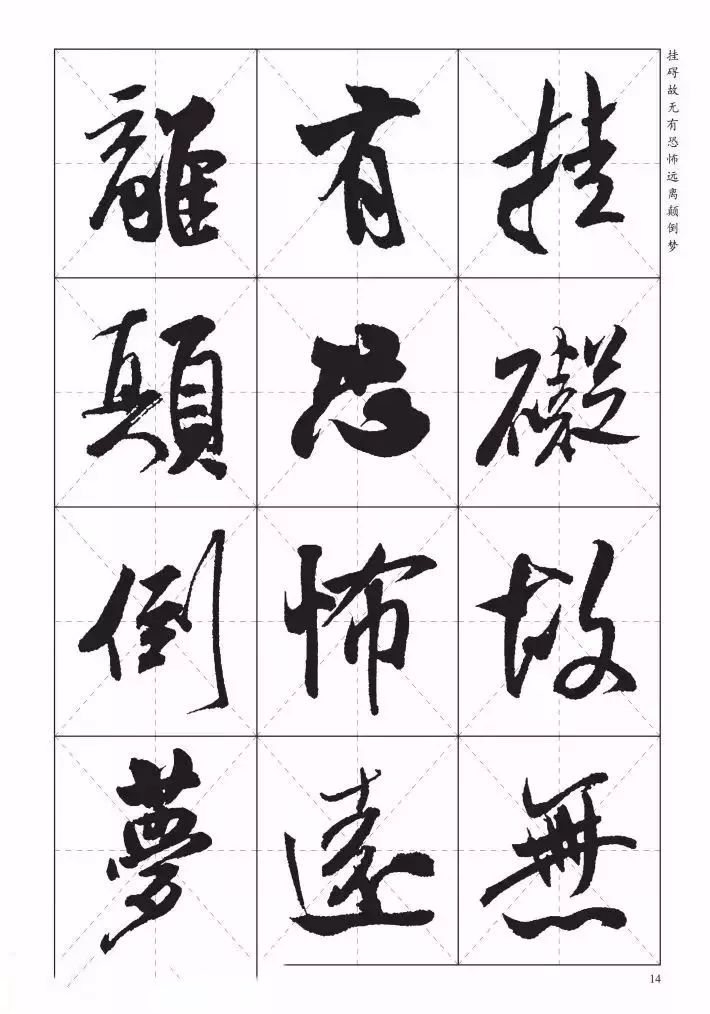 挂礙故無
有恐怖遠
離顛倒夢
挂碍故无有恐怖远离颠倒梦
14